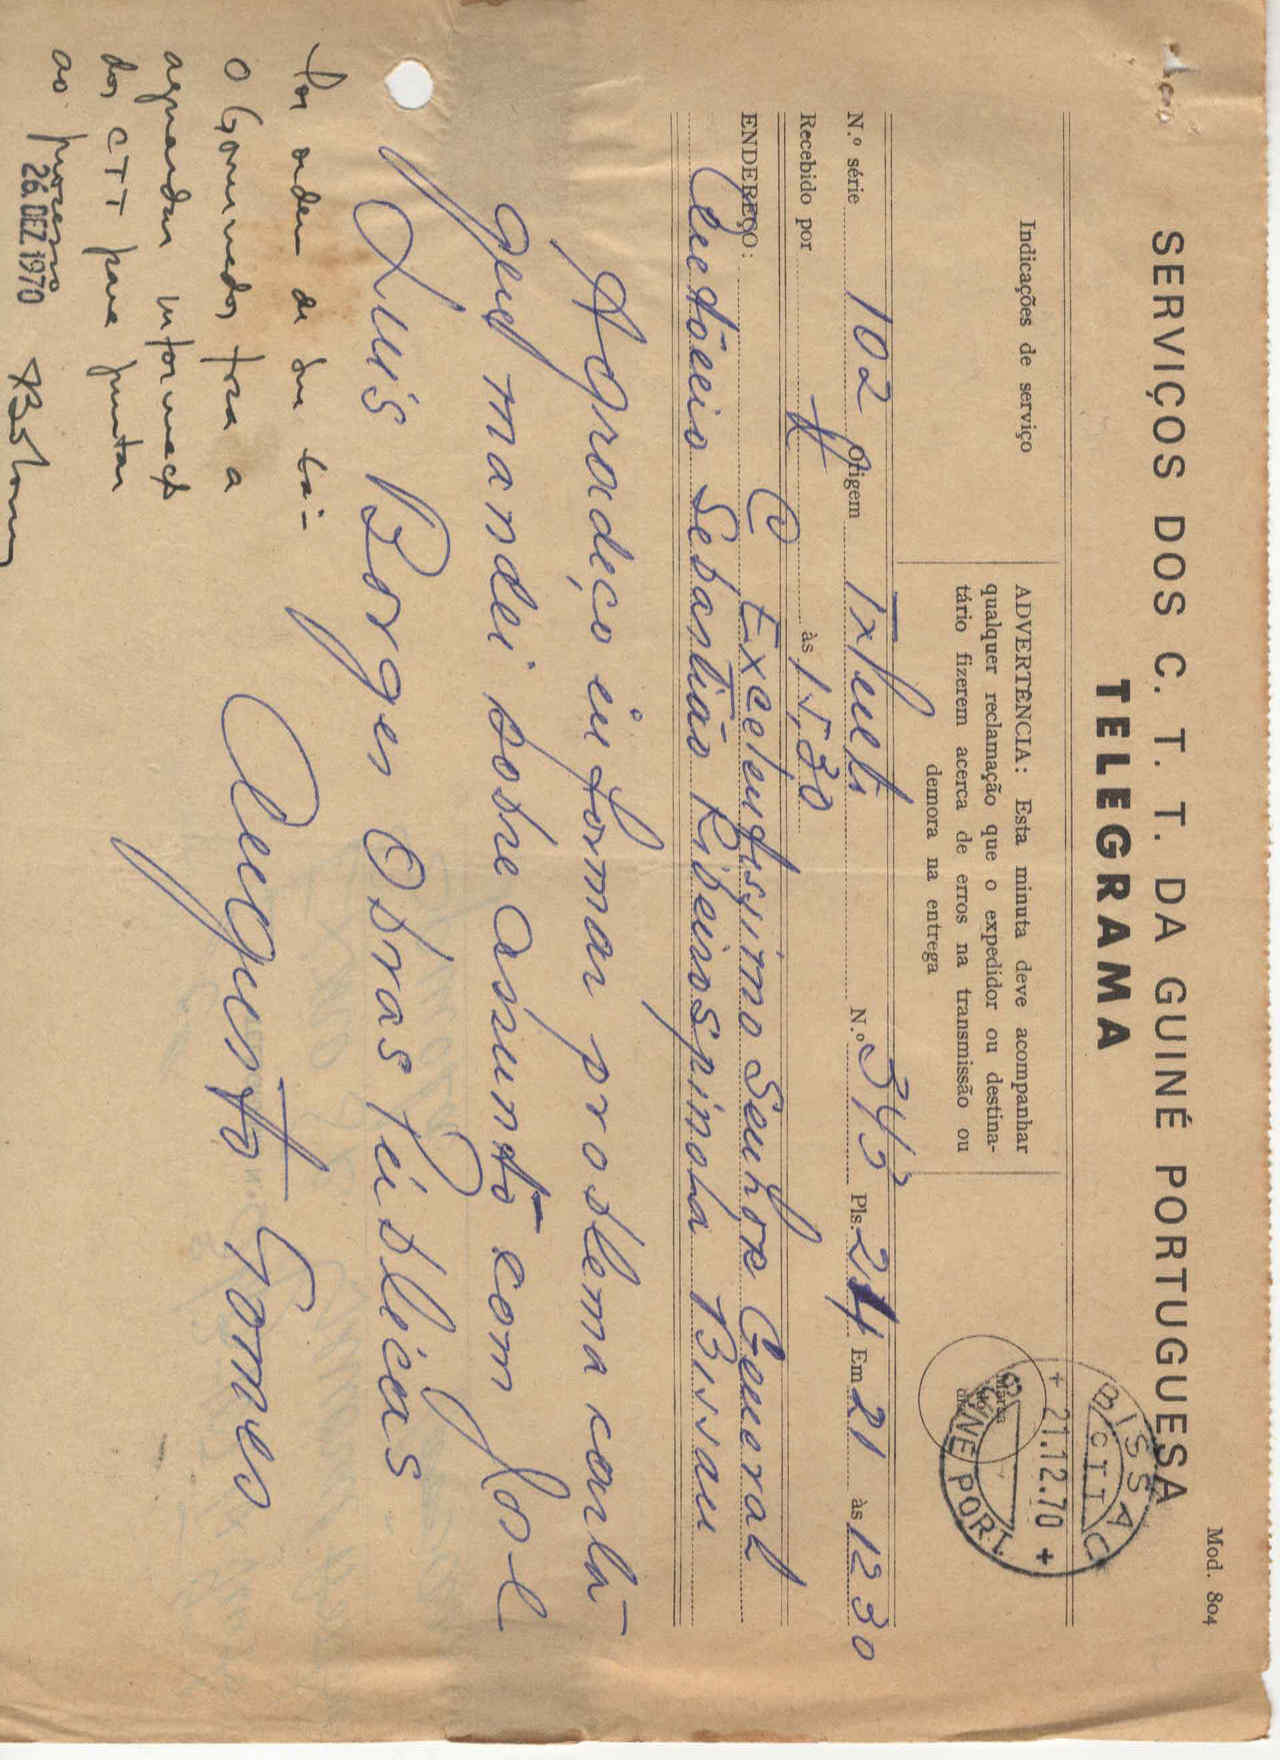 Mod. 804
SERVIÇOS DOS C. T. T. DA GUINÉ PORTUGUESA
TELEGRAMA
Indicações de serviço
ADVERTÊNCIA: Esta minuta deve acompanhar
qualquer reclamação que o expedidor ou destina-
tário fizerem acerca de erros na transmissão ou
demora na entrega
BISSAU
CTT
+ 21.12.70 +
GUINE PORT.
N.º série 102 Origem N.º 343 Pls. 24 Em 21 às 1230
Recebido por às 15,30
ENDEREÇO: Excelentissimo Senhor General
António Sebantião Ribeirospinola Bissau
Agradeço informar problema cantá
gend mandei sobre assunto com Jose
Luis Borges Obras Públicas
Augusto Gomes
Por ordem de Sua Ex.ª
o Governador fica a
aguardar informação
dos CTT para juntar
ao processo
26. DEZ 1970